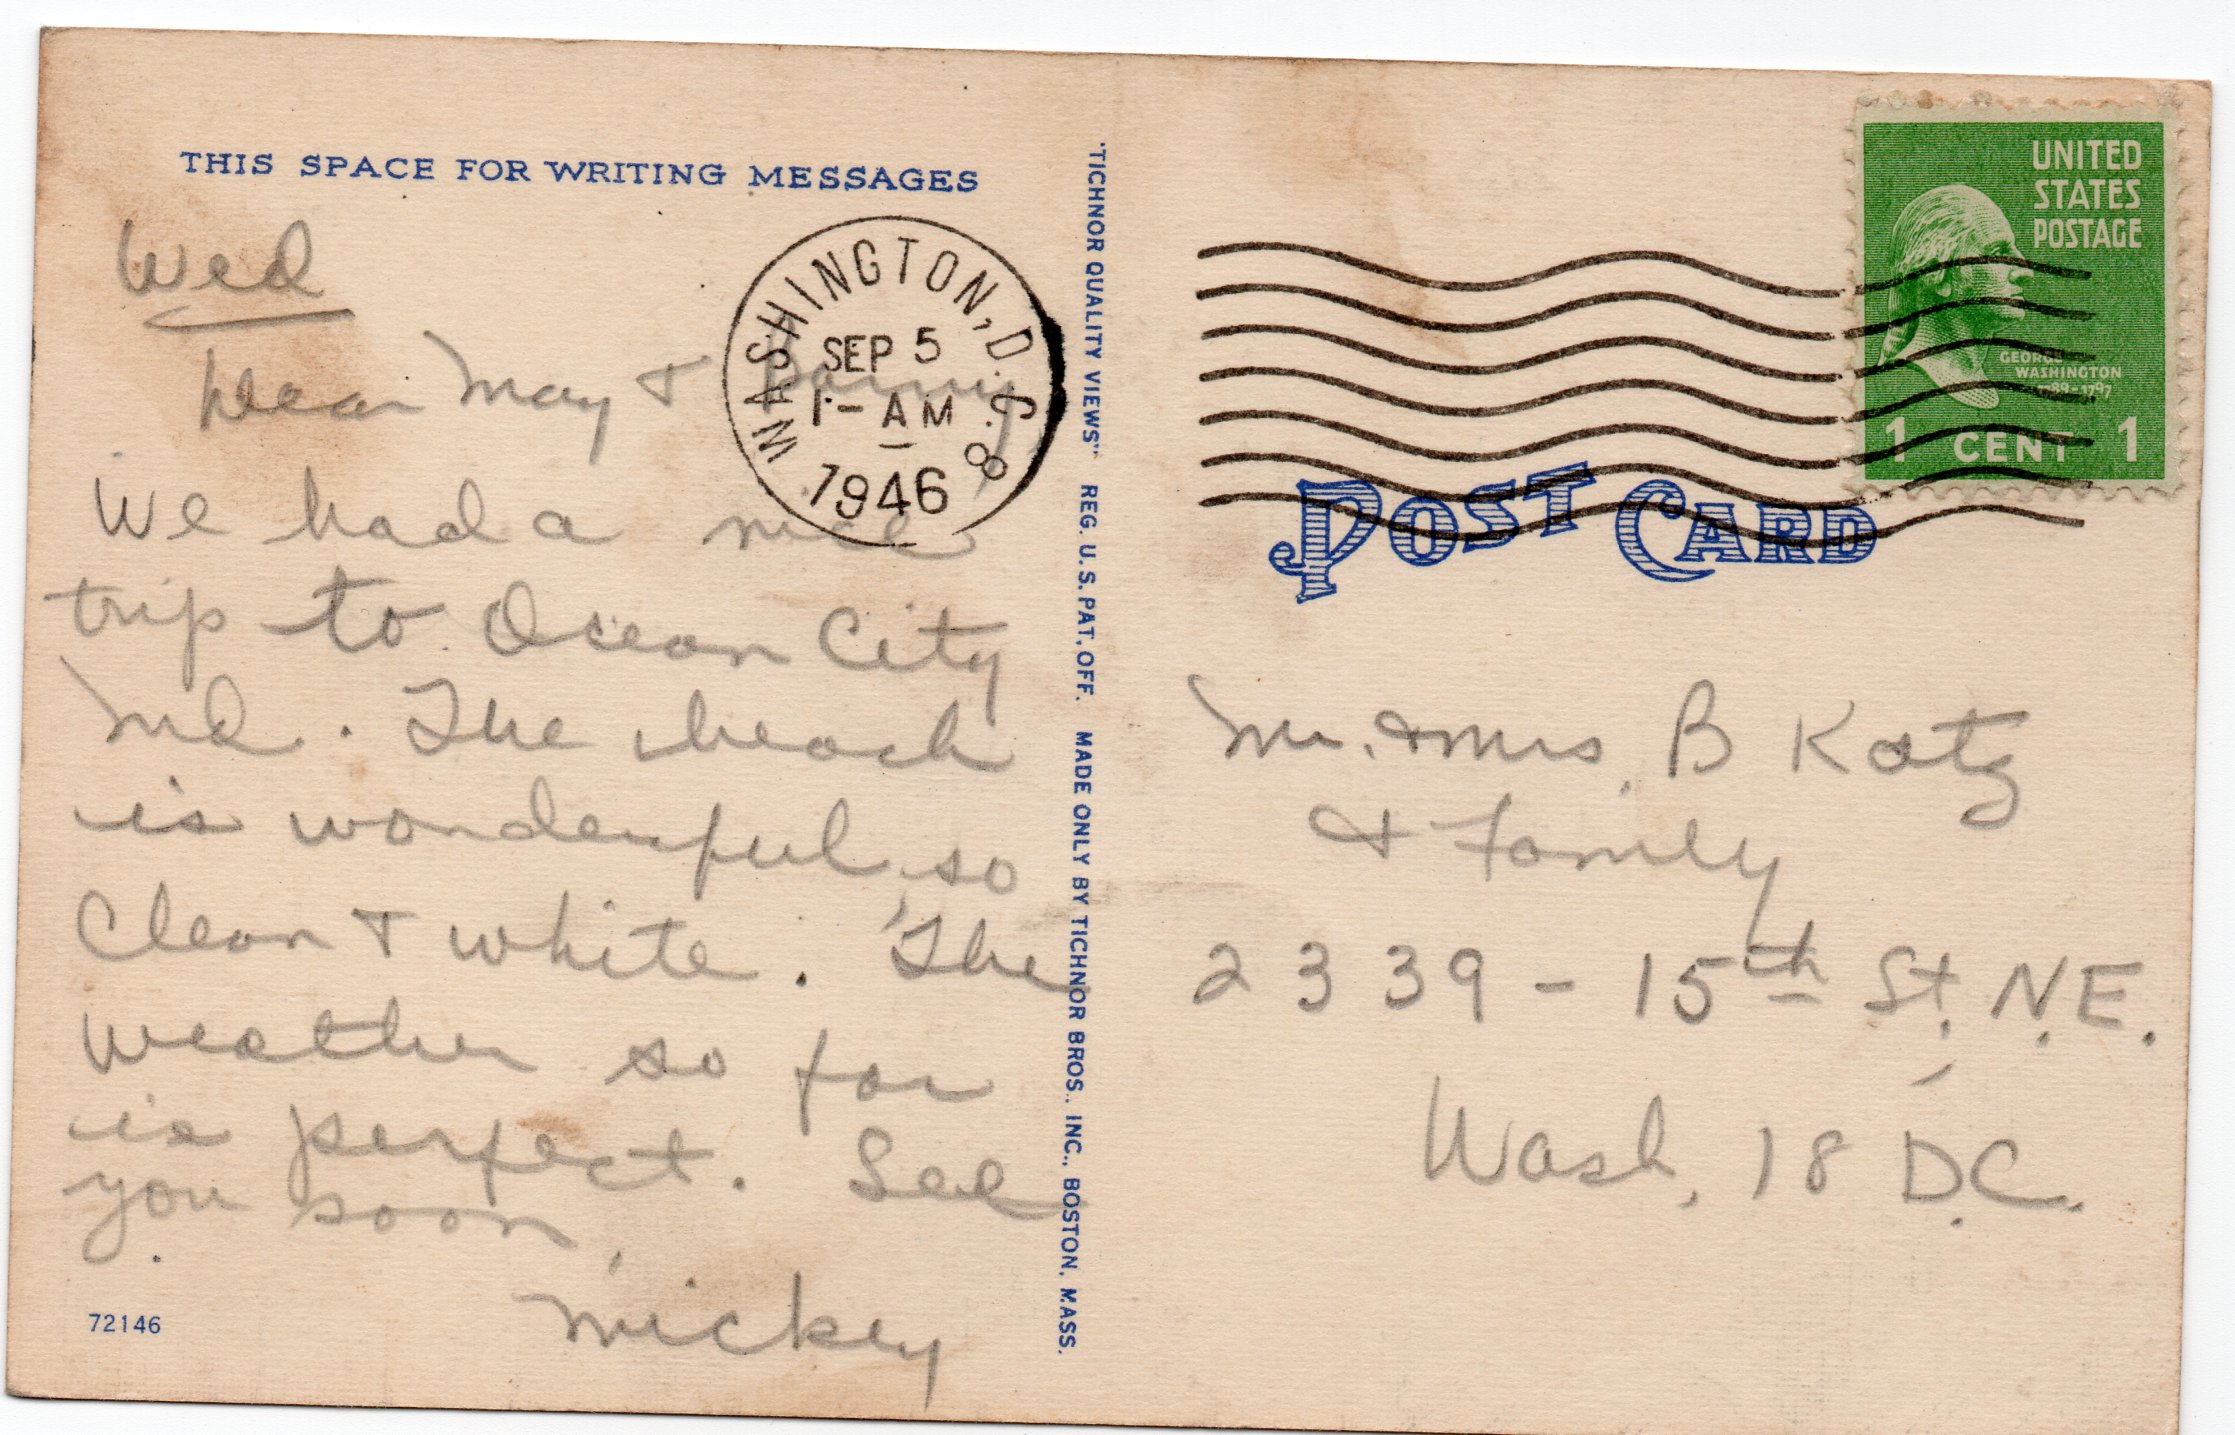 THIS SPACE FOR WRITING MESSAGES
Wed
Dear May &
We had a nice
trip to Ocean City
Md. The beach
is wonderful, so
Clean & white. The
weather so far
is perfect. See
you soon,
Mickey
72146
WASHINGTON, D.C. 8
SEP 5
1-AM
1946
"TICHNOR QUALITY VIEWS" REG. U.S. PAT. OFF. MADE ONLY BY TICHNOR BROS., INC., BOSTON, MASS.
UNITED
STATES
POSTAGE
GEORGE
WASHINGTON
1789-1797
1 CENT 1
POST CARD
Mr. & Mrs. B Katz
& Family
2339 - 15th St. N.E.
Wash, 18 D.C.